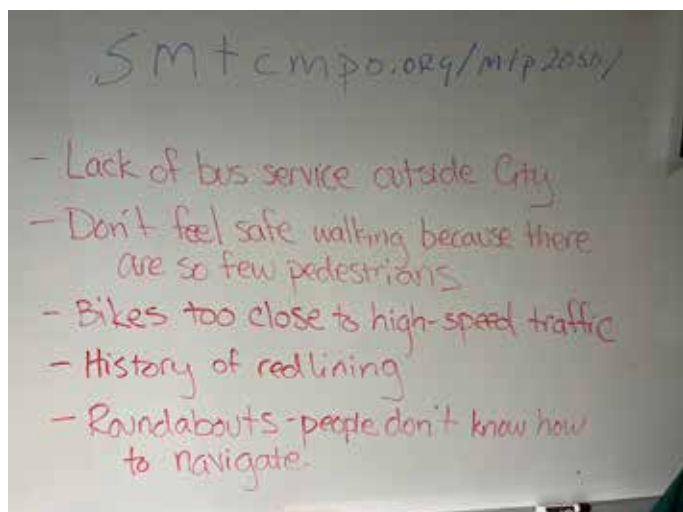 smtcmpo.org/mtp2050/
- Lack of bus service outside City
- Don't feel safe walking because there
are so few pedestrians
- Bikes too close to high-speed traffic
- History of redlining
- Roundabouts - people don't know how
to navigate.